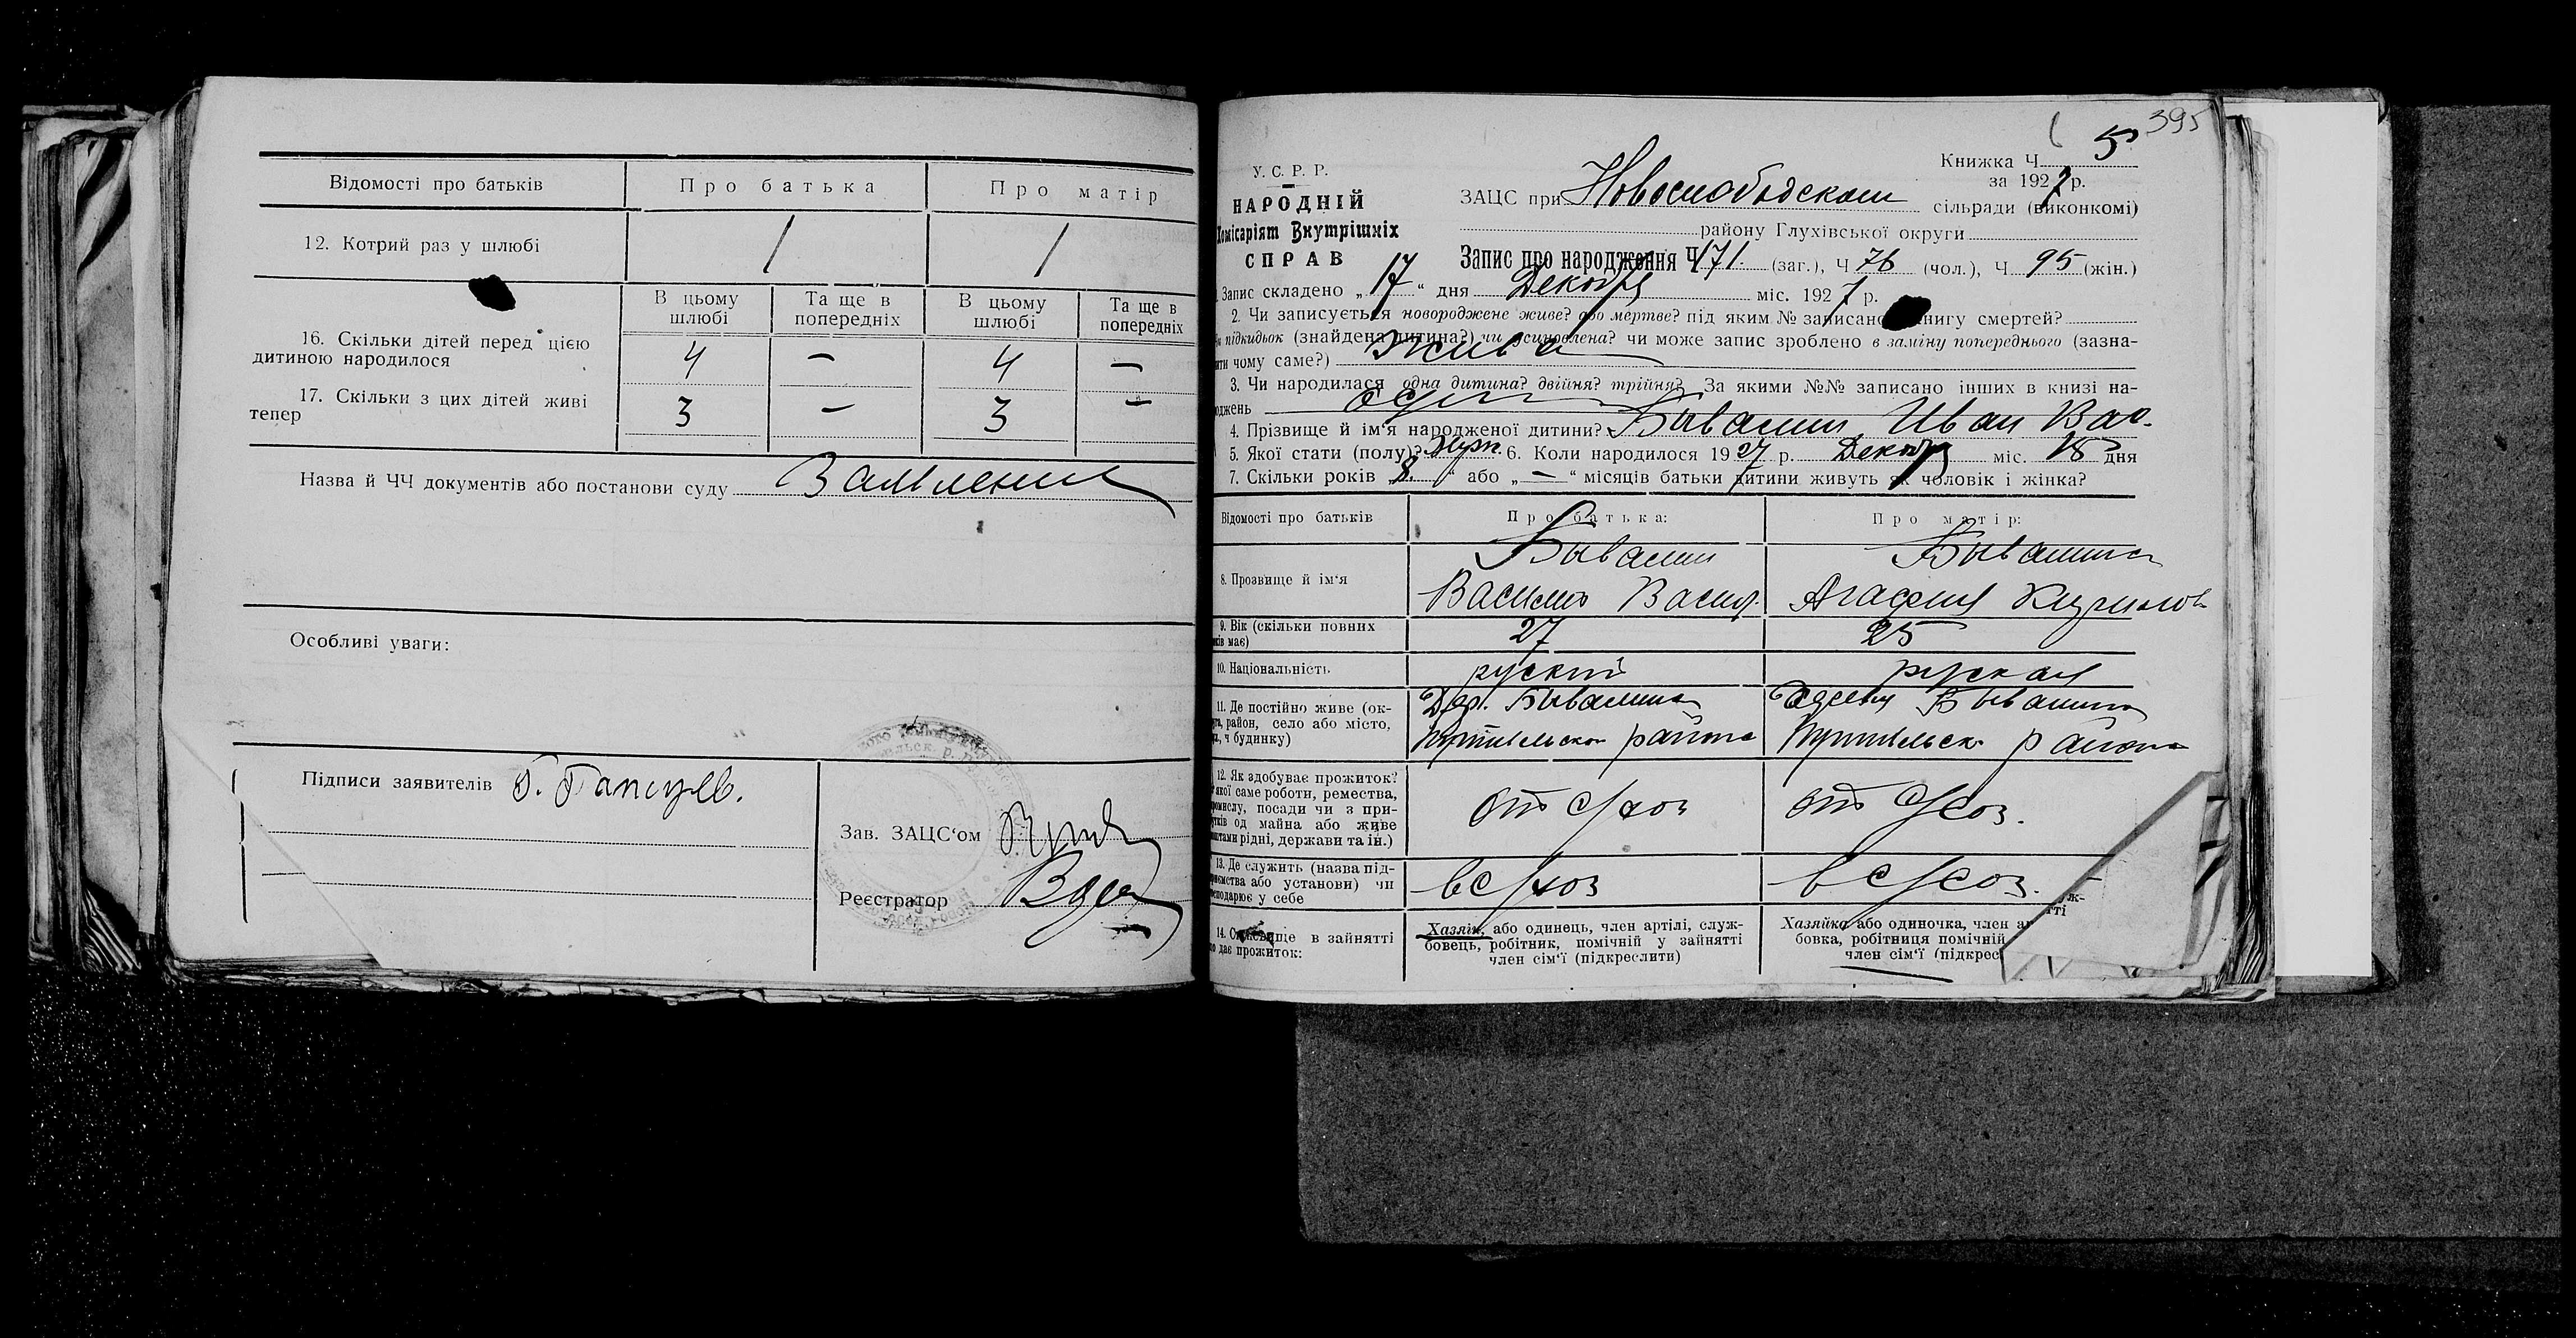 Відомості про батьків
Про батька
Про матір
12. Котрий раз у шлюбі
/
/
В цьому шлюбі
Та ще в попередніх
В цьому шлюбі
Та ще в попередніх
16. Скільки дітей перед цією
дитиною народилося
4
—
4
—
17. Скільки з цих дітей живі
тепер
3
—
3
—
Назва й ЧЧ документів або постанови суду
Особливі уваги:
Підписи заявителів
Зав. ЗАЦС‘ом
Реєстратор
395
5
Книжка Ч
за 1927 р.
У. С. Р. Р.
НАРОДНІЙ
Комісаріят Внутрішніх
СПРАВ
ЗАЦС при Новослободском сільради (виконкомі)
району Глухівської округи
Запис про народження Ч 171. (заг.), Ч 76 (чол.), Ч 95 (жін.)
Запис складено „17“ дня Декабря міс. 1927 р.
2. Чи записується новороджене живе? або мертве? під яким № записано книгу смертей?
підкидьок (знайдена дитина?) чи усиновлена? чи може запис зроблено в заміну попереднього (зазна-
чити чому саме?) жива
3. Чи народилася одна дитина? двійня? трійня? За якими №№ записано інших в книзі на-
роджень один
4. Прізвище й ім‘я народженої дитини? Бывалин Иван Вас.
5. Якої статі (полу)? 6. Коли народилося 1927 р. Декабря міс. дня
7. Скільки років „8.“ або „—“ місяців батьки дитини живуть як чоловік і жінка?
Відомості про батьків
Про батька:
Про матір:
8. Прозвище й ім‘я
Бывалин
Василий Васил.
Бывалина
Агафия Кирилов
9. Вік (скільки повних
років має)
27
25
10. Національність
руский
руская
11. Де постійно живе (ок-
руга, район, село або місто,
ч будинку)
Дер. Бывалина
Путивльского района
Бывалина
Путивльск. района
12. Як здобуває прожиток?
якої саме роботи, ремества,
промислу, посади чи з при-
бутків од майна або живе
коштами рідні, держави та ін.)
от с/хоз
от с/хоз.
13. Де служить (назва під-
приємства або установи) чи
господарює у себе
в с/хоз
в с/хоз.
14. Становище в зайнятті
що дає прожиток:
Хазяїн, або одинець, член артілі, служ-
бовець, робітник, помічній у зайнятті
член сім‘ї (підкреслити)
Хазяйка або одиночка, член
бовка, робітниця помічній
член сім‘ї (підкрес